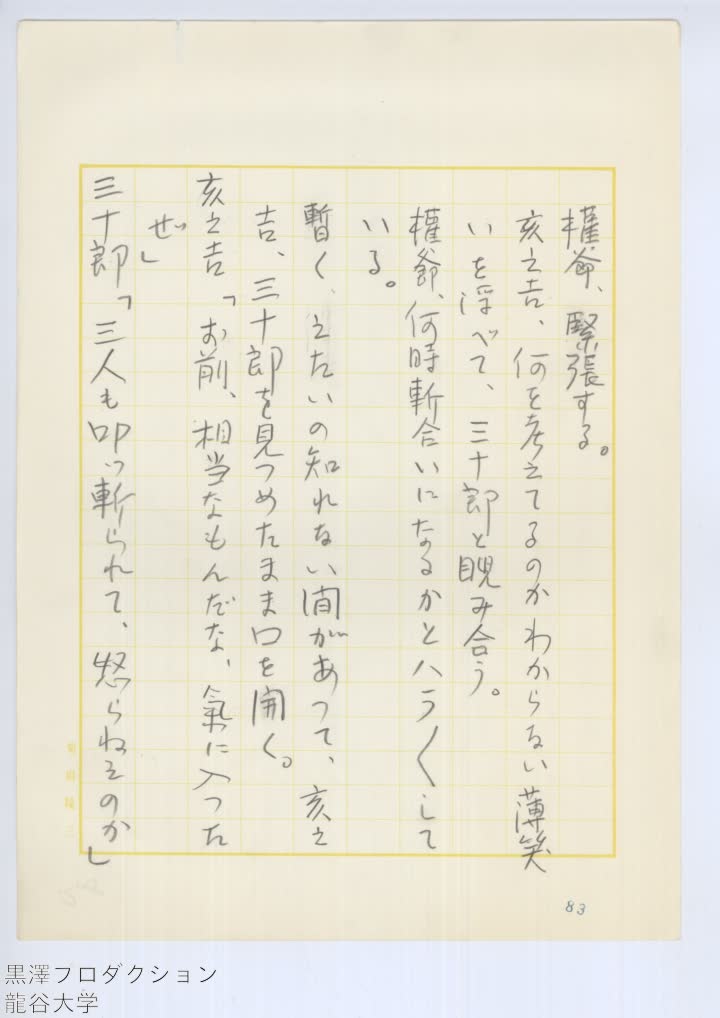 権爺、緊張する。
亥之吉、何を考えてるのかわからない薄笑
いを浮べて、三十郎と睨み合う。
権爺、何時斬合いになるかとハラ〱して
いる。
暫く、えたいの知れない間があつて、亥之
吉、三十郎を見つめたまま口を開く。
亥之吉「お前、相当なもんだな、氣に入つた
ぜ」
三十郎「三人も叩っ斬られて、怒らねえのか」
83
黒澤プロダクション
龍谷大学